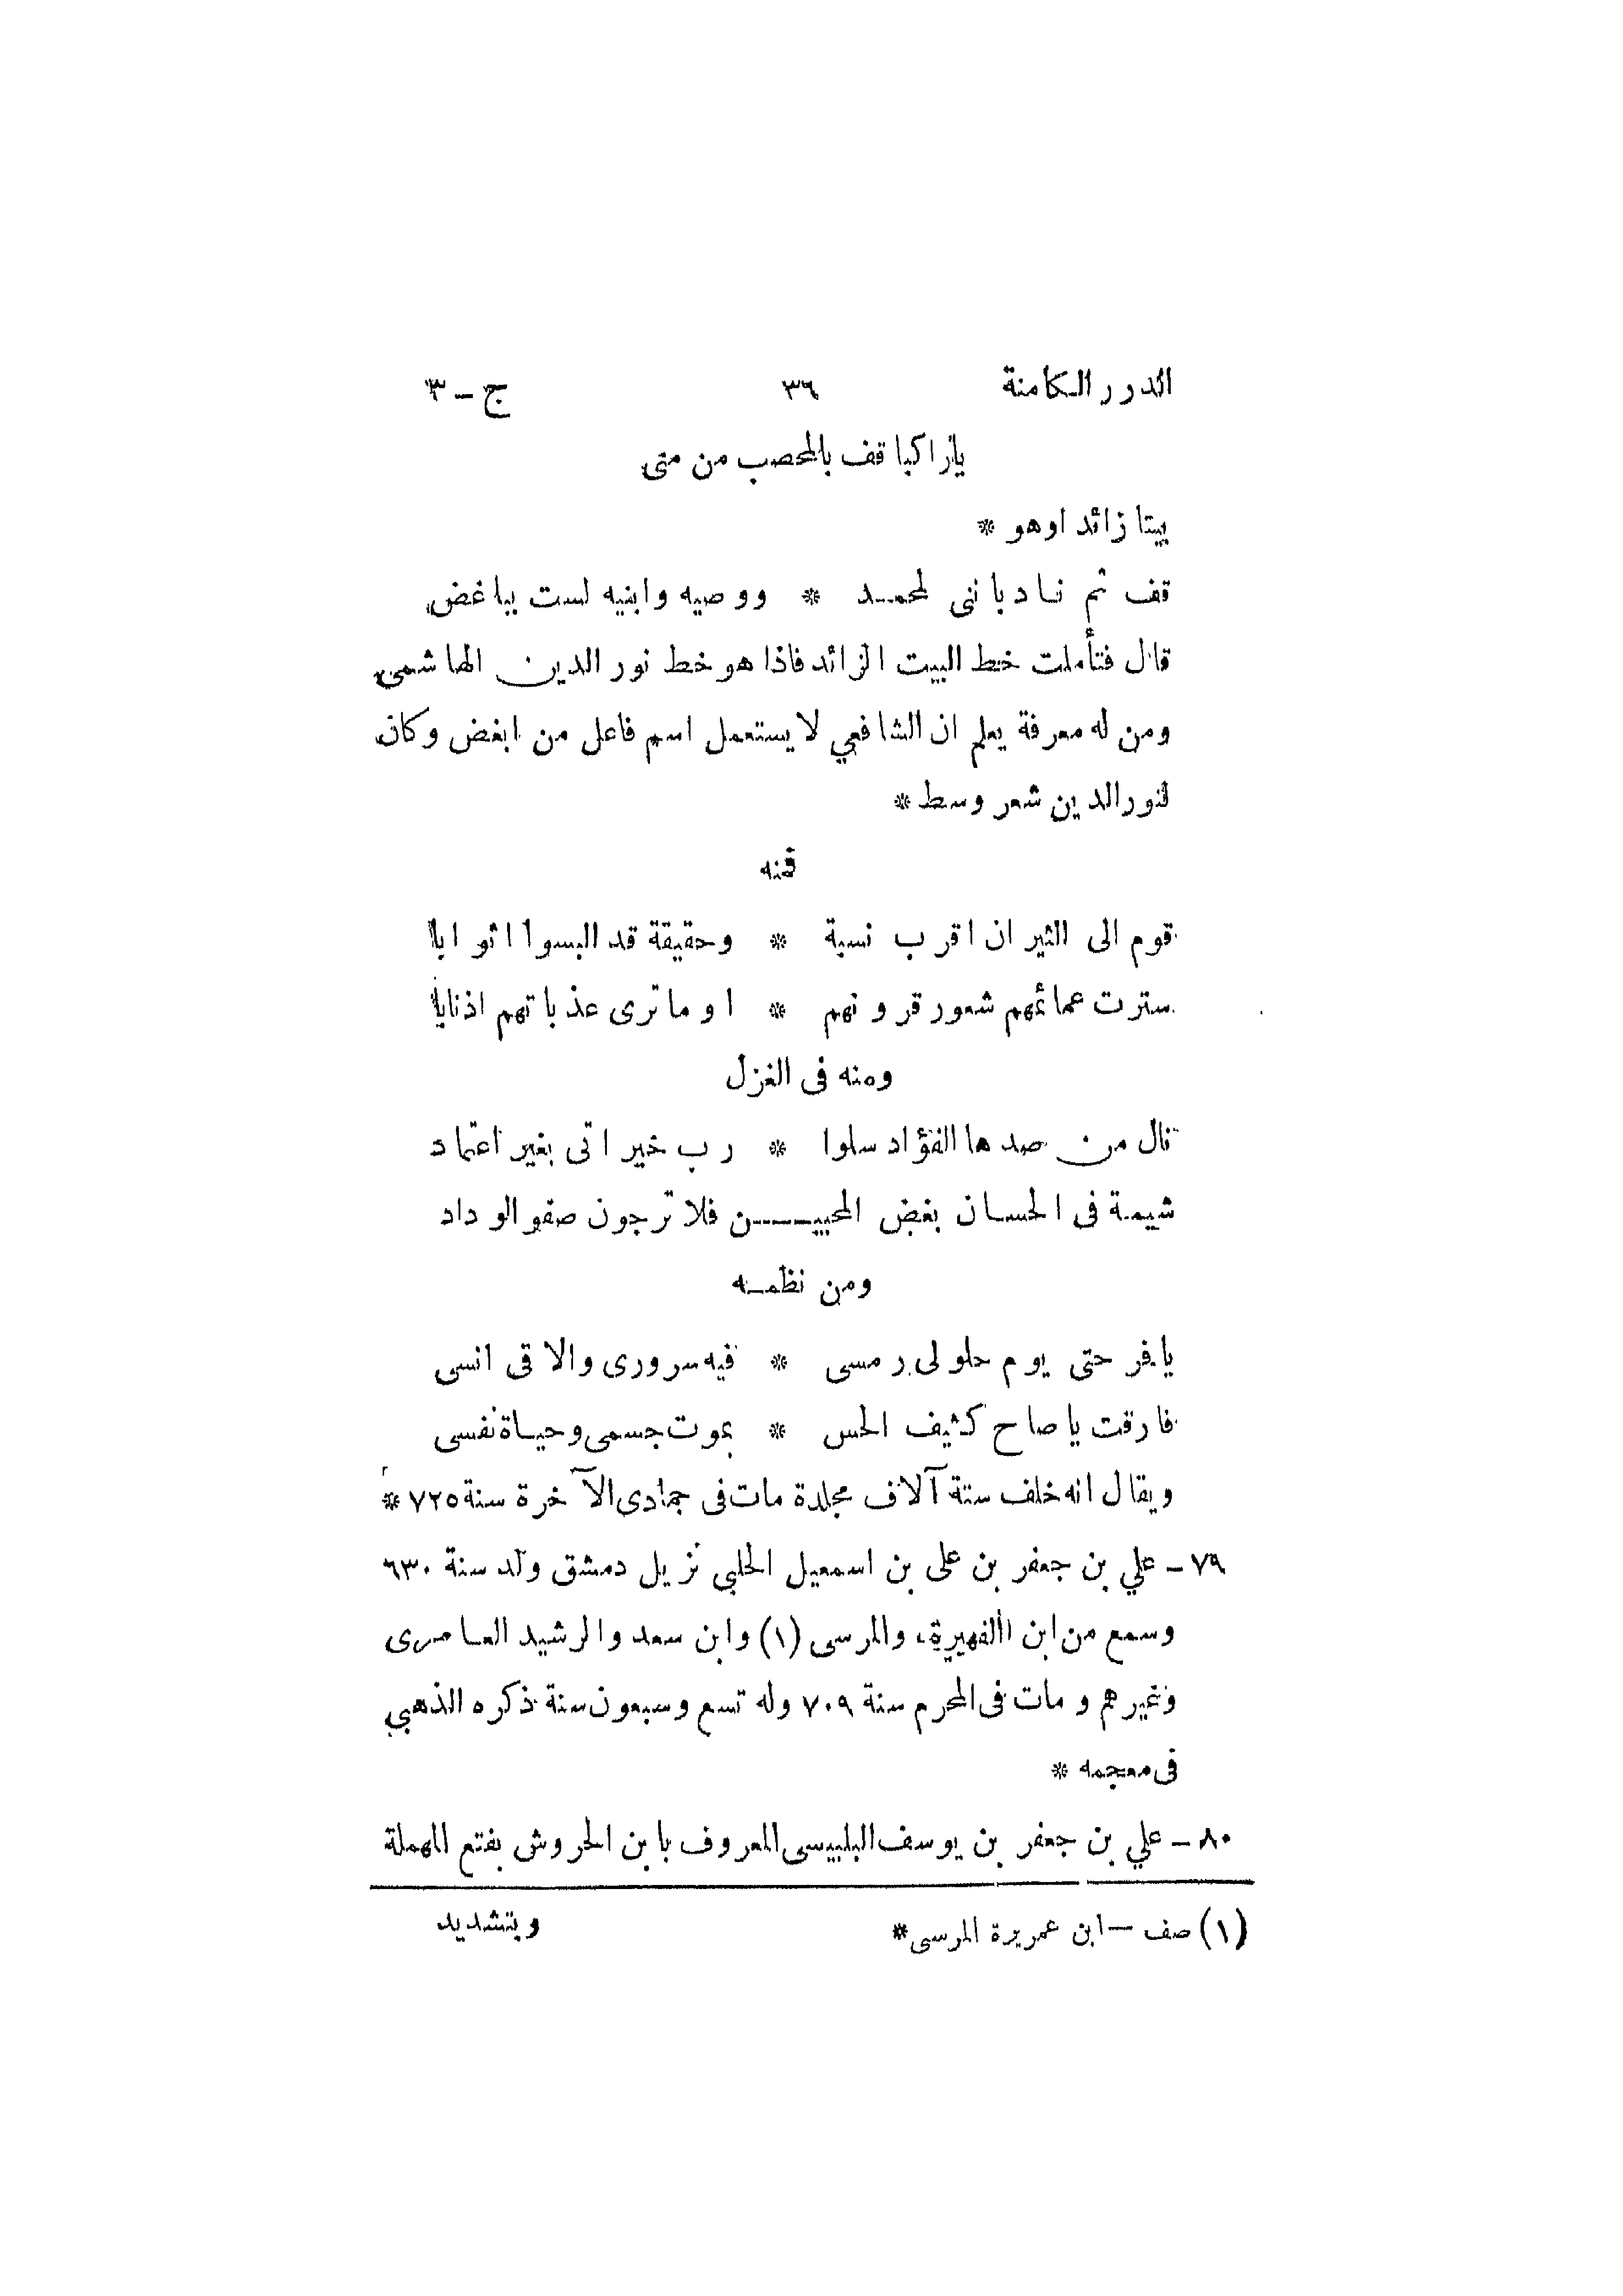 الدرر الكامنة ٣٦ ج - ٣
ياراكبا قف بالمحصب من منى
بيتا زائدا وهو *
قف ثم ناد بانى لمحمد * ووصيه وابنيه لست بباغض
قال فتأملت خط البيت الزائد فاذا هو خط نور الدين الهاشمى
ومن له معرفة يعلم ان الشافعي لا يستعمل اسم فاعل من ابغض وكان
لنور الدين شعر وسط *
فمنه
قوم الى الثيران اقرب نسبة * وحقيقة قد البسوا اثوابا
سترت عمائمهم شعور قرونهم * او ما ترى عذباتهم اذنابا
ومنه فى الغزل
نال من صدها الفؤاد سلوا * رب خير اتى بغير اعتماد
شيمة فى الحسان بغض المحبيـــن فلا ترجون صفو الوداد
ومن نظمه
يا فرحتى يوم حلولى رمسى * فيه سرورى والاقى انسى
فارقت ياصاح كثيف الحس * بموت جسمى وحياة نفسى
ويقال انه خلف ستة آلاف مجلدة مات فى جمادى الآخرة سنة ٧٢٥ *
٧٩ - علي بن جعفر بن على بن اسمعيل الحلبي نزيل دمشق ولد سنة ٦٣٠
وسمع من ابن الفهيرة والمرسى (١) وابن سعد والرشيد العامرى
وغيرهم ومات فى المحرم سنة ٧٠٩ وله تسع وسبعون سنة ذكره الذهبي
فى معجمه *
٨٠ - علي بن جعفر بن يوسف البلبيسى المعروف بابن الحروش بفتح المهملة
(١) صف - ابن عمريرة المرسى * وبتشديد